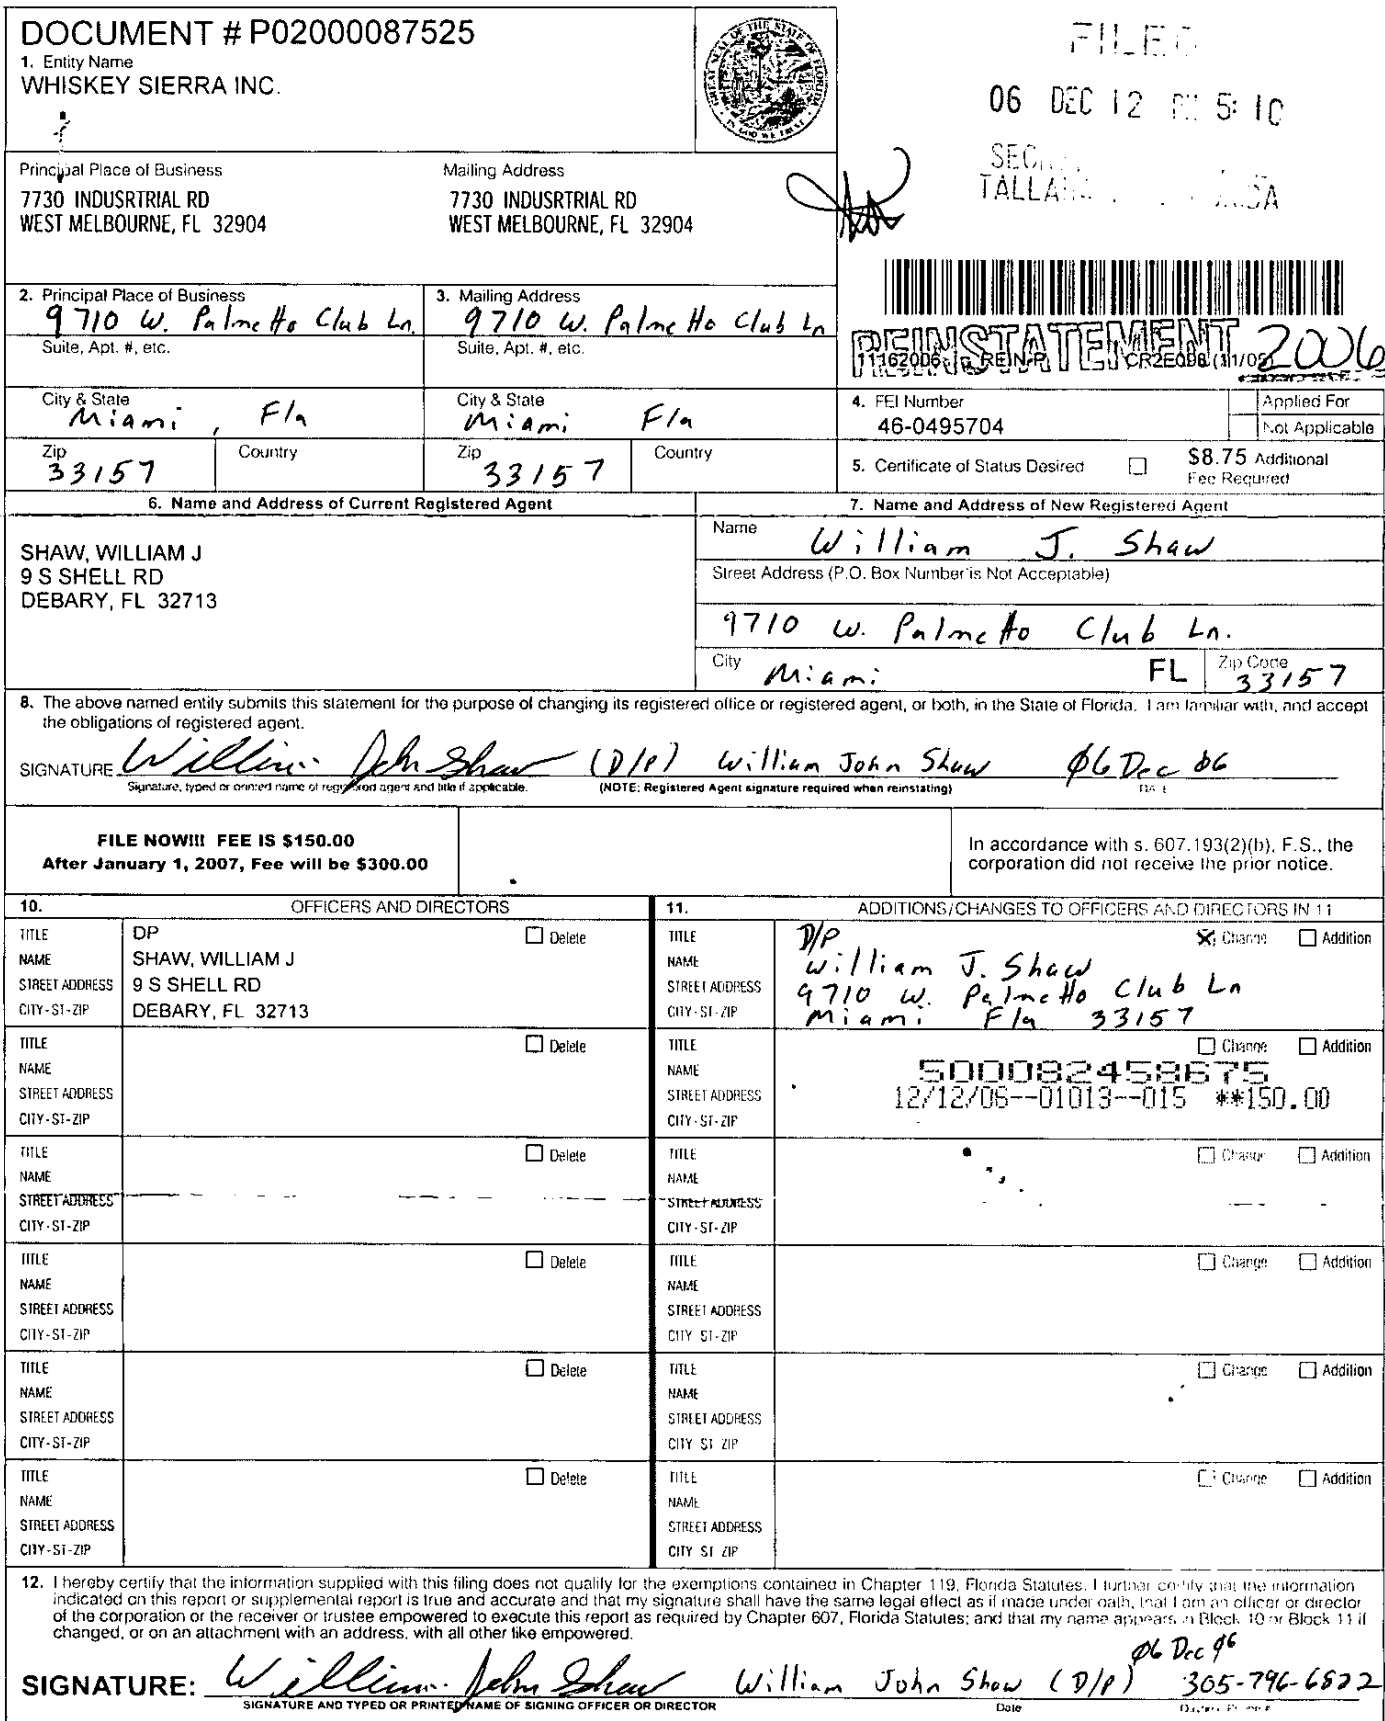 DOCUMENT # P02000087525
1. Entity Name
WHISKEY SIERRA INC.
FILED
06 DEC 12 PM 5:10
Principal Place of Business
7730 INDUSRTRIAL RD
WEST MELBOURNE, FL 32904
Mailing Address
7730 INDUSRTRIAL RD
WEST MELBOURNE, FL 32904
2. Principal Place of Business
9710 W. Palmetto Club Ln.
Suite, Apt. #, etc.
City & State
Miami, Fla
Zip
33157
Country
3. Mailing Address
9710 W. Palmetto Club Ln
Suite, Apt. #, etc.
City & State
Miami Fla
Zip
33157
Country
REINSTATEMENT 2006
11162006 REIN-P CR2E098 (11/05)
4. FEI Number
46-0495704
Applied For
Not Applicable
5. Certificate of Status Desired
$8.75 Additional
Fee Required
6. Name and Address of Current Registered Agent
SHAW, WILLIAM J
9 S SHELL RD
DEBARY, FL 32713
7. Name and Address of New Registered Agent
Name William J. Shaw
Street Address (P.O. Box Number is Not Acceptable)
9710 W. Palmetto Club Ln.
City Miami FL Zip Code 33157
8. The above named entity submits this statement for the purpose of changing its registered office or registered agent, or both, in the State of Florida. I am familiar with, and accept
the obligations of registered agent.
SIGNATURE William John Shaw (D/P) William John Shaw 06 Dec 06
Signature, typed or printed name of registered agent and title if applicable. (NOTE: Registered Agent signature required when reinstating) DATE
FILE NOW!!! FEE IS $150.00
After January 1, 2007, Fee will be $300.00
In accordance with s. 607.193(2)(b), F.S., the
corporation did not receive the prior notice.
10. OFFICERS AND DIRECTORS
TITLE DP Delete
NAME SHAW, WILLIAM J
STREET ADDRESS 9 S SHELL RD
CITY-ST-ZIP DEBARY, FL 32713
TITLE Delete
NAME
STREET ADDRESS
CITY-ST-ZIP
TITLE Delete
NAME
STREET ADDRESS
CITY-ST-ZIP
TITLE Delete
NAME
STREET ADDRESS
CITY-ST-ZIP
TITLE Delete
NAME
STREET ADDRESS
CITY-ST-ZIP
TITLE Delete
NAME
STREET ADDRESS
CITY-ST-ZIP
11. ADDITIONS/CHANGES TO OFFICERS AND DIRECTORS IN 11
TITLE D/P Change Addition
NAME William J. Shaw
STREET ADDRESS 9710 W. Palmetto Club Ln
CITY-ST-ZIP Miami Fla 33157
TITLE Change Addition
NAME 500082458675
STREET ADDRESS 12/12/06--01013--015 **150.00
CITY-ST-ZIP
TITLE Change Addition
NAME
STREET ADDRESS
CITY-ST-ZIP
TITLE Change Addition
NAME
STREET ADDRESS
CITY ST-ZIP
TITLE Change Addition
NAME
STREET ADDRESS
CITY ST ZIP
TITLE Change Addition
NAME
STREET ADDRESS
CITY ST ZIP
12. I hereby certify that the information supplied with this filing does not qualify for the exemptions contained in Chapter 119, Florida Statutes. I further certify that the information
indicated on this report or supplemental report is true and accurate and that my signature shall have the same legal effect as if made under oath, that I am an officer or director
of the corporation or the receiver or trustee empowered to execute this report as required by Chapter 607, Florida Statutes; and that my name appears in Block 10 or Block 11 if
changed, or on an attachment with an address, with all other like empowered.
06 Dec 06
SIGNATURE: William John Shaw William John Shaw (D/P) 305-796-6822
SIGNATURE AND TYPED OR PRINTED NAME OF SIGNING OFFICER OR DIRECTOR Date Daytime Phone #